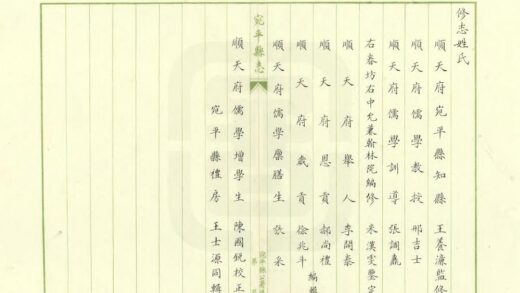 修志姓氏
順天府宛平縣知縣 王養濂監修
順天府儒學教授 邢吉士
順天府儒學訓導 張調鼐
右春坊右中允兼翰林院編修 米漢雯鑒定
順天府舉人 李開泰
順天府恩貢 郝尚禮
順天府歲貢 徐兆斗
編輯
宛平縣志
順天府儒學廩膳生 張采
順天府儒學增學生 陳國銳校正
宛平縣禮房 王士源同輯